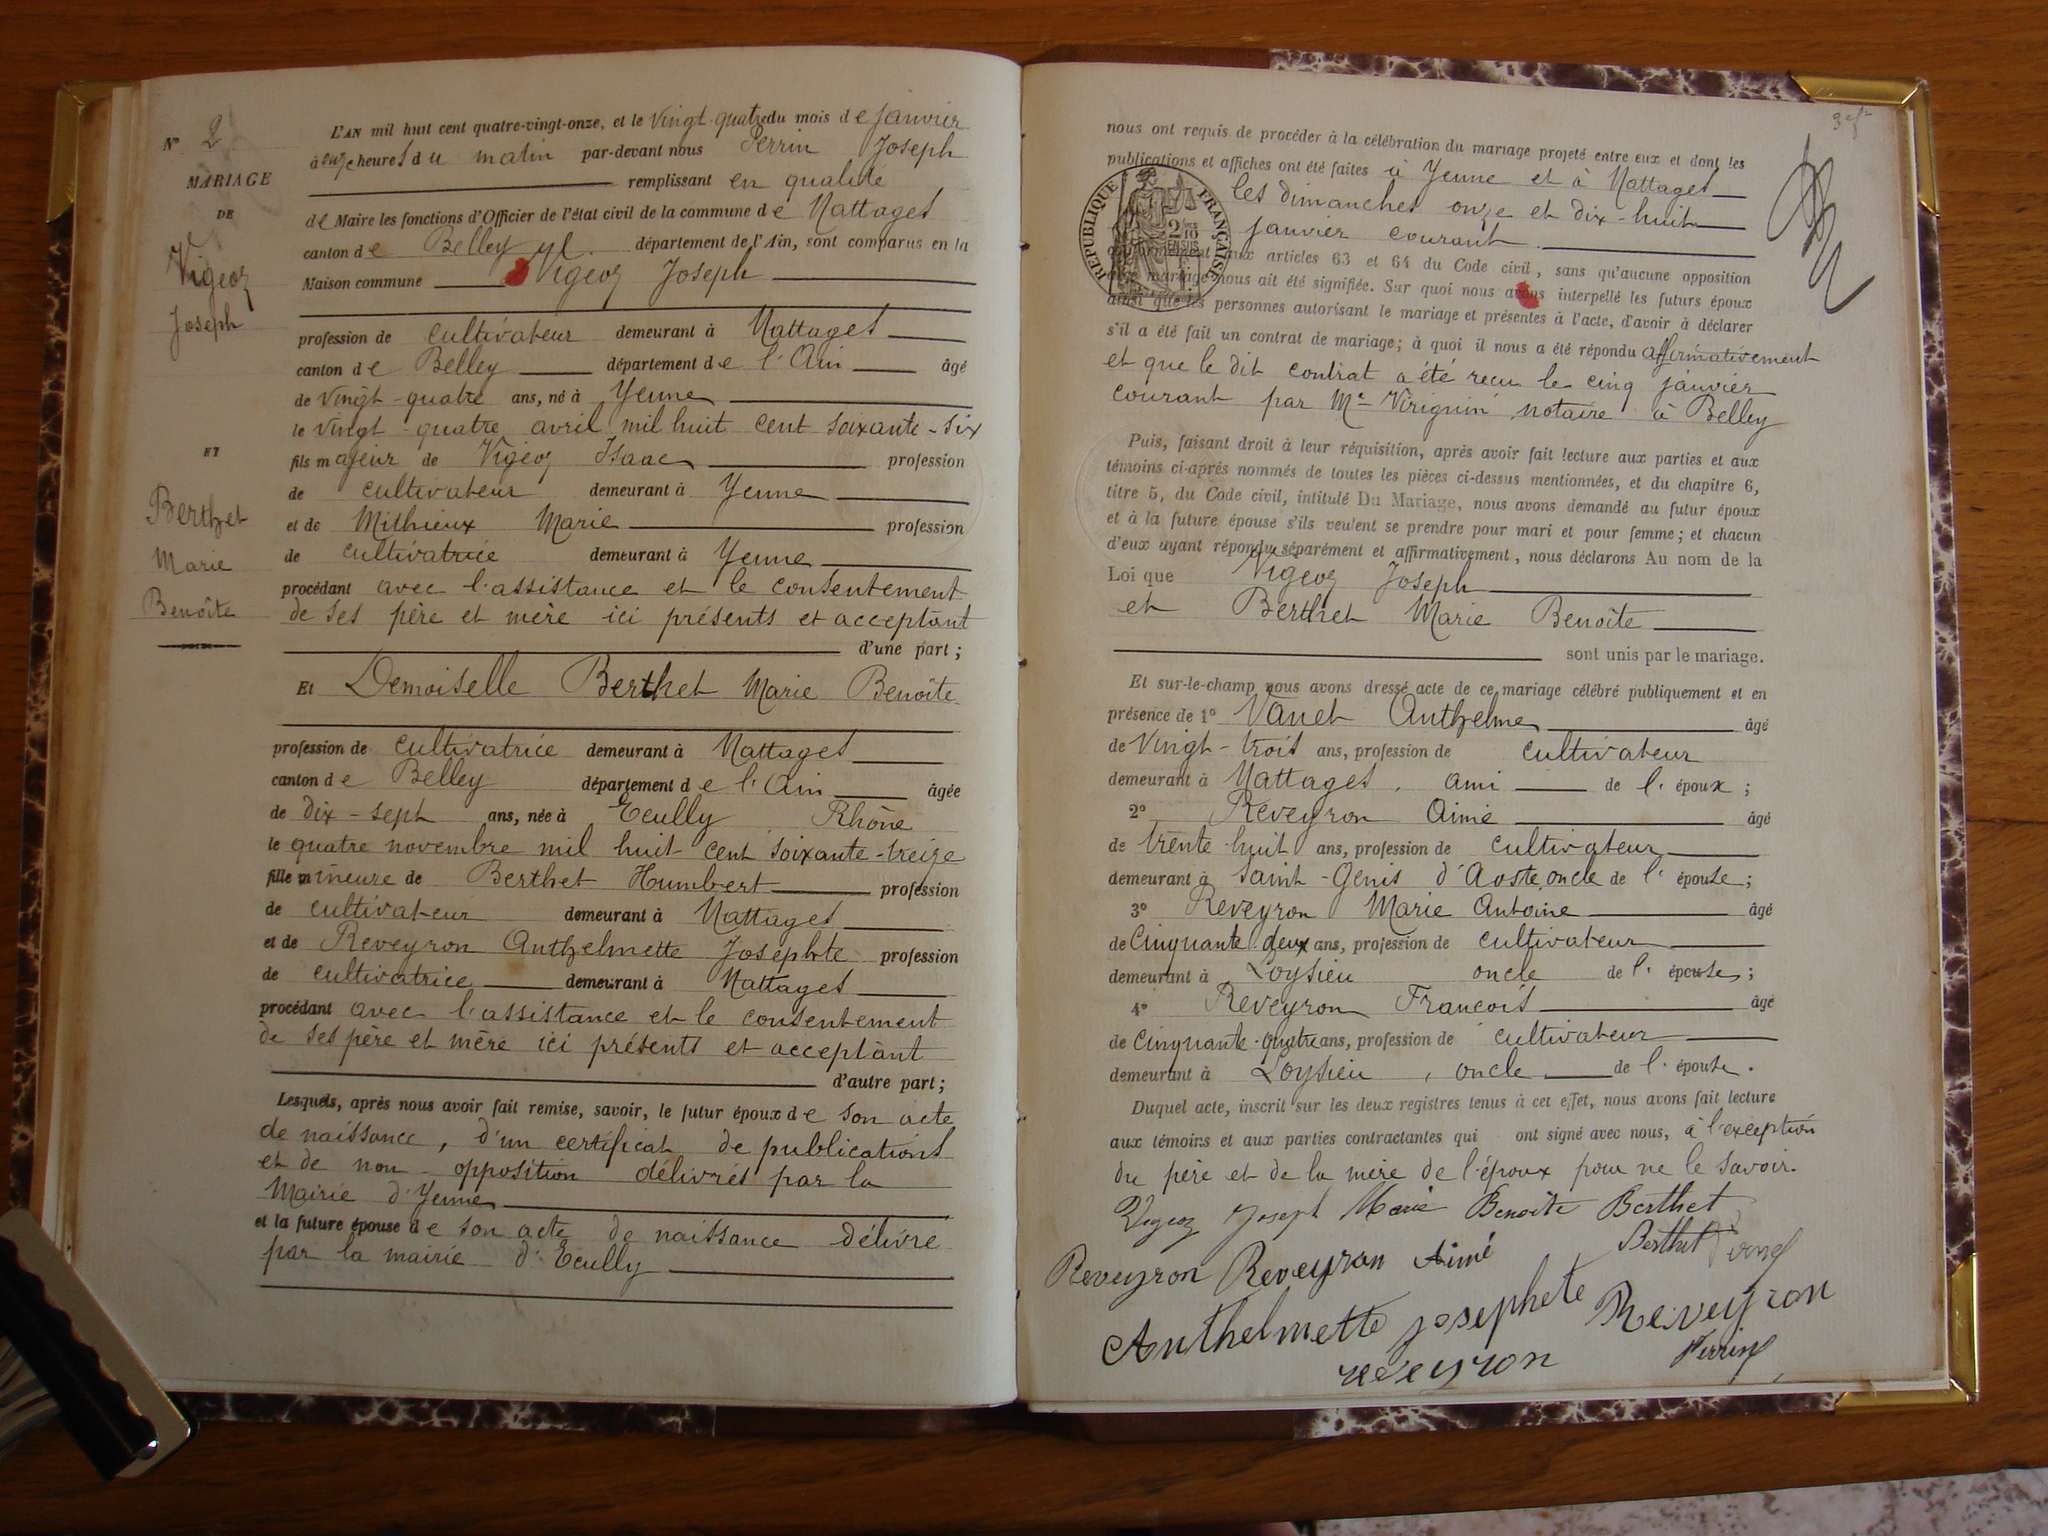 N° 2
MARIAGE
DE
Vigeoz
Joseph
ET
Berthet
Marie
Benoîte
L'AN mil huit cent quatre-vingt-onze, et le vingt-quatre du mois de janvier
à onze heures du matin par-devant nous Perrin Joseph
remplissant en qualité
de Maire les fonctions d'Officier de l'état civil de la commune de Nattages
canton de Belley département de l'Ain, sont comparus en la
Maison commune Vigeoz Joseph
profession de cultivateur demeurant à Nattages
canton de Belley département de l'Ain âgé
de vingt-quatre ans, né à Yenne
le vingt-quatre avril mil huit cent soixante-six
fils majeur de Vigeoz Isaac profession
de cultivateur demeurant à Yenne
et de Mithieux Marie profession
de cultivatrice demeurant à Yenne
procédant avec l'assistance et le consentement
de ses père et mère ici présents et acceptant
d'une part ;
Et Demoiselle Berthet Marie Benoîte
profession de cultivatrice demeurant à Nattages
canton de Belley département de l'Ain âgée
de dix-sept ans, née à Ecully Rhône
le quatre novembre mil huit cent soixante-treize
fille mineure de Berthet Humbert profession
de cultivateur demeurant à Nattages
et de Reveyron Anthelmette Josephte profession
de cultivatrice demeurant à Nattages
procédant avec l'assistance et le consentement
de ses père et mère ici présents et acceptant
d'autre part ;
Lesquels, après nous avoir fait remise, savoir, le futur époux de son acte
de naissance, d'un certificat de publications
et de non-opposition délivrés par la
Mairie d'Yenne
et la future épouse de son acte de naissance délivré
par la mairie d'Ecully
nous ont requis de procéder à la célébration du mariage projeté entre eux et dont les
publications et affiches ont été faites à Yenne et à Nattages
les dimanches onze et dix-huit
janvier courant
RÉPUBLIQUE FRANÇAISE
aux articles 63 et 64 du Code civil, sans qu'aucune opposition
mariage nous ait été signifiée. Sur quoi nous avons interpellé les futurs époux
ainsi que les personnes autorisant le mariage et présentes à l'acte, d'avoir à déclarer
s'il a été fait un contrat de mariage ; à quoi il nous a été répondu affirmativement
et que le dit contrat a été reçu le cinq janvier
courant par Me Virignin notaire à Belley
Puis, faisant droit à leur réquisition, après avoir fait lecture aux parties et aux
témoins ci-après nommés de toutes les pièces ci-dessus mentionnées, et du chapitre 6,
titre 5, du Code civil, intitulé Du Mariage, nous avons demandé au futur époux
et à la future épouse s'ils veulent se prendre pour mari et pour femme ; et chacun
d'eux ayant répondu séparément et affirmativement, nous déclarons Au nom de la
Loi que Vigeoz Joseph
et Berthet Marie Benoîte
sont unis par le mariage.
Et sur-le-champ nous avons dressé acte de ce mariage célébré publiquement et en
présence de 1° Vanet Anthelme âgé
de vingt-trois ans, profession de cultivateur
demeurant à Nattages, ami de l'époux ;
2° Reveyron Aimé âgé
de trente-huit ans, profession de cultivateur
demeurant à Saint-Genis d'Aoste, oncle de l'épouse ;
3° Reveyron Marie Antoine âgé
de Cinquante-deux ans, profession de cultivateur
demeurant à Loysieu oncle de l'épouse ;
4° Reveyron François âgé
de Cinquante-quatre ans, profession de cultivateur
demeurant à Loysieu, oncle de l'épouse.
Duquel acte, inscrit sur les deux registres tenus à cet effet, nous avons fait lecture
aux témoins et aux parties contractantes qui ont signé avec nous, à l'exception
du père et de la mère de l'époux pour ne le savoir.
Vigeoz Joseph Marie Benoîte Berthet
Berthet
Reveyron Reveyron Aimé
Anthelmette josephete Reveyron
reveyron Perrin